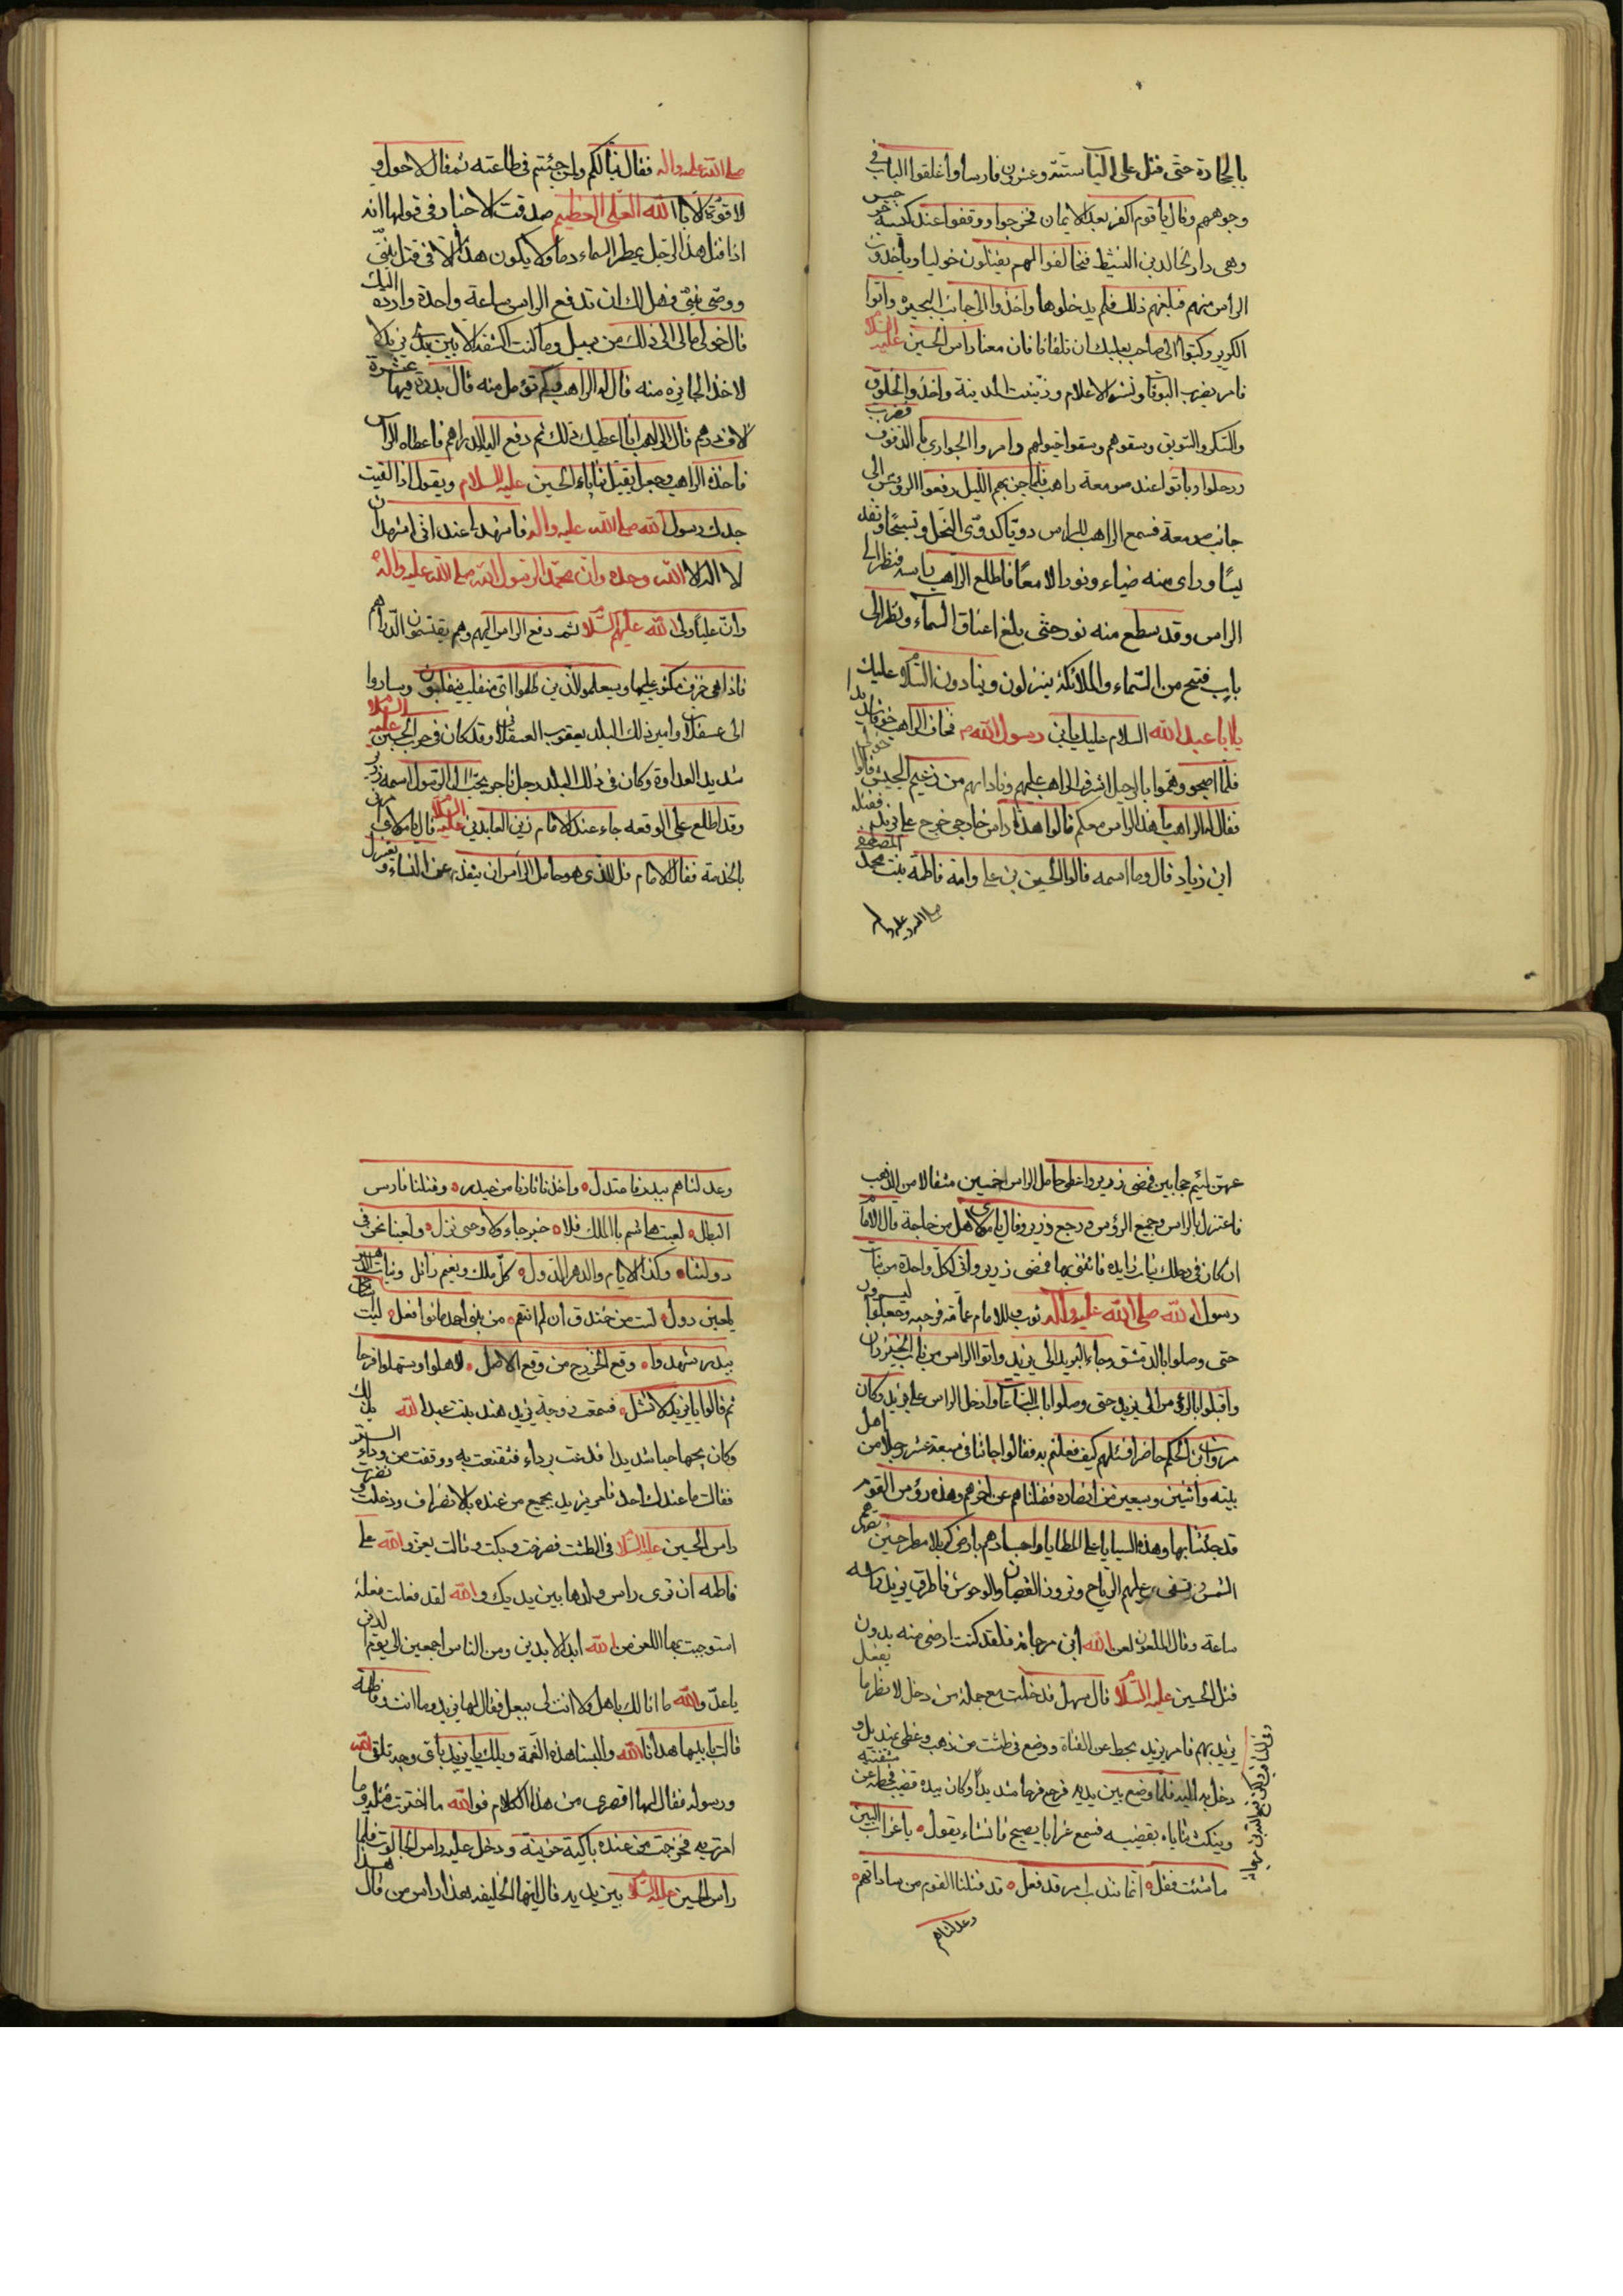 بالحجارة حتى قتل على الباب ستة وعشرون فارسا واغلقوا الباب في
وجوههم وقال يا قوم اكفر بعد الايمان فخرجوا ووقفوا عند كنيسة
وهي دار خالد بن النشيط فتحالفوا انهم يقتلون خوليا وياخذون
الراس منهم فبلغهم ذلك فلم يدخلوها واخذوا الى جانب البحيره واتوا
وكتبوا الى صاحب بعلبك ان تلقانا فان معنا راس الحسين عليه السلام
فامر بضرب البوقات ونشر الاعلام وزينت المدينة واخذوا الخلوق
والسكر والسويق وسقوهم وسقوا خيولهم وامروا الجواري فضرب الدفوف
ورحلوا وباتوا عند صومعة راهب فلما جن بهم الليل رفعوا الروس الى
جانب صومعة فسمع الراهب للراس دويا كدوي النحل وتسبيحا وتقد
يسا وراى منه ضياء ونورا لامعا فاطلع الراهب راسه فنظر الى
الراس وقد سطع منه نور حتى بلغ اعناق السماء ونظر الى
باب فتح من السماء والملائكة ينزلون وينادون السلام عليك
يا ابا عبد الله السلام عليك يا ابن رسول الله فخاف الراهب خوفا شديدا
فلما اصبحوا وهموا بالرحيل اشرف الراهب عليهم وناداهم من زعيم الجيش قالوا خولى
فقال لهم الراهب ما هذا الراس معكم قالوا هذا راس خارجي خرج على يزيد فقتله
ابن زياد قال وما اسمه قالوا الحسين بن علي وامه فاطمة بنت محمد المصطفى
صلى الله عليه واله
صلى الله عليه واله فقال تبا لكم ولمن جئتم في طاعته ثم قال لا حول و
لا قوة الا بالله العلي العظيم صدقت الاخبار في قولها انه
اذا قتل هذا الرجل يمطر السماء دما ولا يكون هذا الا في قتل نبي
ووصي نبي فهل لك ان تدفع الراس ساعة واحدة وارده اليك
قال خولى مالى الى ذلك من سبيل وما كنت اكشفه الا بين يدي يزيد لا
لاخذ الجايزه منه قال له الراهب فكم تؤمل منه قال بدرة فيها عشرة
الاف درهم قال الراهب انا اعطيك ذلك ثم دفع اليه الدراهم فاعطاه الراس
فاخذه الراهب وجعل يقبل ثناياه الحسين عليه السلام ويقول اذا لقيت
جدك رسول الله صلى الله عليه واله فاشهد لي عنده اني اشهد ان
لا اله الا الله وحده وان محمد الرسول الله صلى الله عليه واله
وان عليا ولى الله عليهم السلام ثم دفع الراس اليهم وهم يقتسمون الدراهم
فاذا هي خزف مكتوب عليها وسيعلموا الذين ظلموا اي منقلب ينقلبون وساروا
الى عسقلان وامير ذلك البلد يعقوب العسقلاني وقد كان في حرب الحسين عليه السلام
شديد العداوة وكان في ذلك البلد رجل تاجر يحب ال الرسول اسمه زرير
وقد اطلع على الوقعه جاء عند الامام زين العابدين عليه السلام قال يا مولاى مرنى
بالخدمة فقال الامام قل للذي هو حامل الراس ان ينفذ عن النساء ويعتزل
فمضى زرير واعطى حامل الراس خمسين مثقالا من الذهب
فاعتزل بالراس وجميع الرؤس ورجع زرير وقال يا مولاى هل من حاجة قال الامام
ان كان في رحلك ثياب زايده فائتنى بها فمضى زرير واتى لكل واحدة من بنات
رسول الله صلى الله عليه واله ثوب وللامام عمامة وجبه وجعلوا يسيرون
حتى وصلوا بالدمشق وجاء البريد الى يزيد واتوا الراس من باب الخيزران
واقبلوا بالرؤس الى يزيد حتى وصلوا باب الساعات وادخل الراس على يزيد وكان
مروان ابن الحكم حاضرا فسئلهم كيف فعلتم به فقالوا جائنا في سبعة عشر رجلا من اهل
بيته واثنين وسبعين من انصاره فقتلناهم عن اخرهم وهذه رؤس القوم
قد جئنا بها وهذه السبايا على المطايا واجسادهم بارض كربلا مطرحين تصهرهم
الشمس وتسفى عليهم الرياح وتزورد العقبان والوحوش فاطرق يزيد راسه
ساعة وقال الملعون لعن الله ابن مرجانه فلقد كنت ارضى منه بدون
قتل الحسين عليه السلام قال سهل فدخلت مع جملة من دخل لانظر ما يفعل
يزيد بهم فامر يزيد بحط عن القناة ووضع في طشت من ذهب وغطى بمنديل و
دخل به اليه فلما وضع بين يديه فرح فرحا شديدا وكان بيده قضيب فحطه عن شفتيه
وينكث ثناياه بقضيبه فسمع غرابا يصيح فانشاء يقول يا غراب البين
ما شئت فقل انما تندب امر قد فعل قد قتلنا القوم من ساداتهم
وعدلناهم
وعدلناهم ببدر فاعتدل واخذنا ثارنا من حيدر وقتلنا فارس
البطل لعبت هاشم بالملك فلا خبر جاء ولا وحى نزل ولعبنا نحن في
دولتنا وكذا الايام والدهر الدول كل ملك ونعيم زائل وبنات الدهر
يلعبن دول لست من خندق ان لم انتقم من بنى احمد ما نوا فعل ليت
ببدر شهدوا وقع الخزرج من وقع الاصل لاهلوا واستهلوا فرحا
ثم قالوا يا يزيد لا تشل فسمعت زوجة يزيد هند بنت عبد الله
وكان يحبها حبا شديدا فدعت برداء فتقنعت به ووقفت من وراء الستر
فقالت ما عندك احد فامر يزيد بجميع من عنده بالانصراف ودخلت
راس الحسين عليه السلام في الطشت فصرخت وبكت وقالت يعز والله على
فاطمه ان ترى راس ولدها بين يديك والله لقد فعلت فعلة
استوجبت بها اللعن من الله ابد الابدين ومن الناس اجمعين الى يوم الدين
والله ما انا لك باهل ولا انت لى ببعل فقال لها يزيد وما انت وفاطمه
قالت بابيها هدانا الله والبسنا هذه النعمة ويلك يا يزيد باى وجه تلقى الله
ورسوله فقال لها اقصرى من هذا الكلام فوالله ما اخترت قتله وما
امرت به فخرجت من عنده باكية حزينة ودخل عليه راس الجالوت فلما
راس الحسين عليه السلام بين يديه قال ايها الخليفه هذا راس من قال